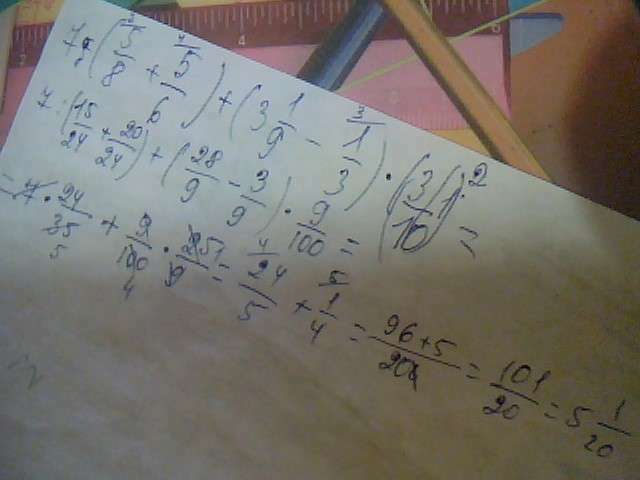 7 : (3/8 + 5/6) + (3 1/9 - 1/3) · (3/10)² =
7 · (15/24 + 20/24) + (28/9 - 3/9) · 9/100 =
= 7 · 24/35 + 9/100 · 25/9 = 24/5 + 1/4 = 96+5/20 = 101/20 = 5 1/20